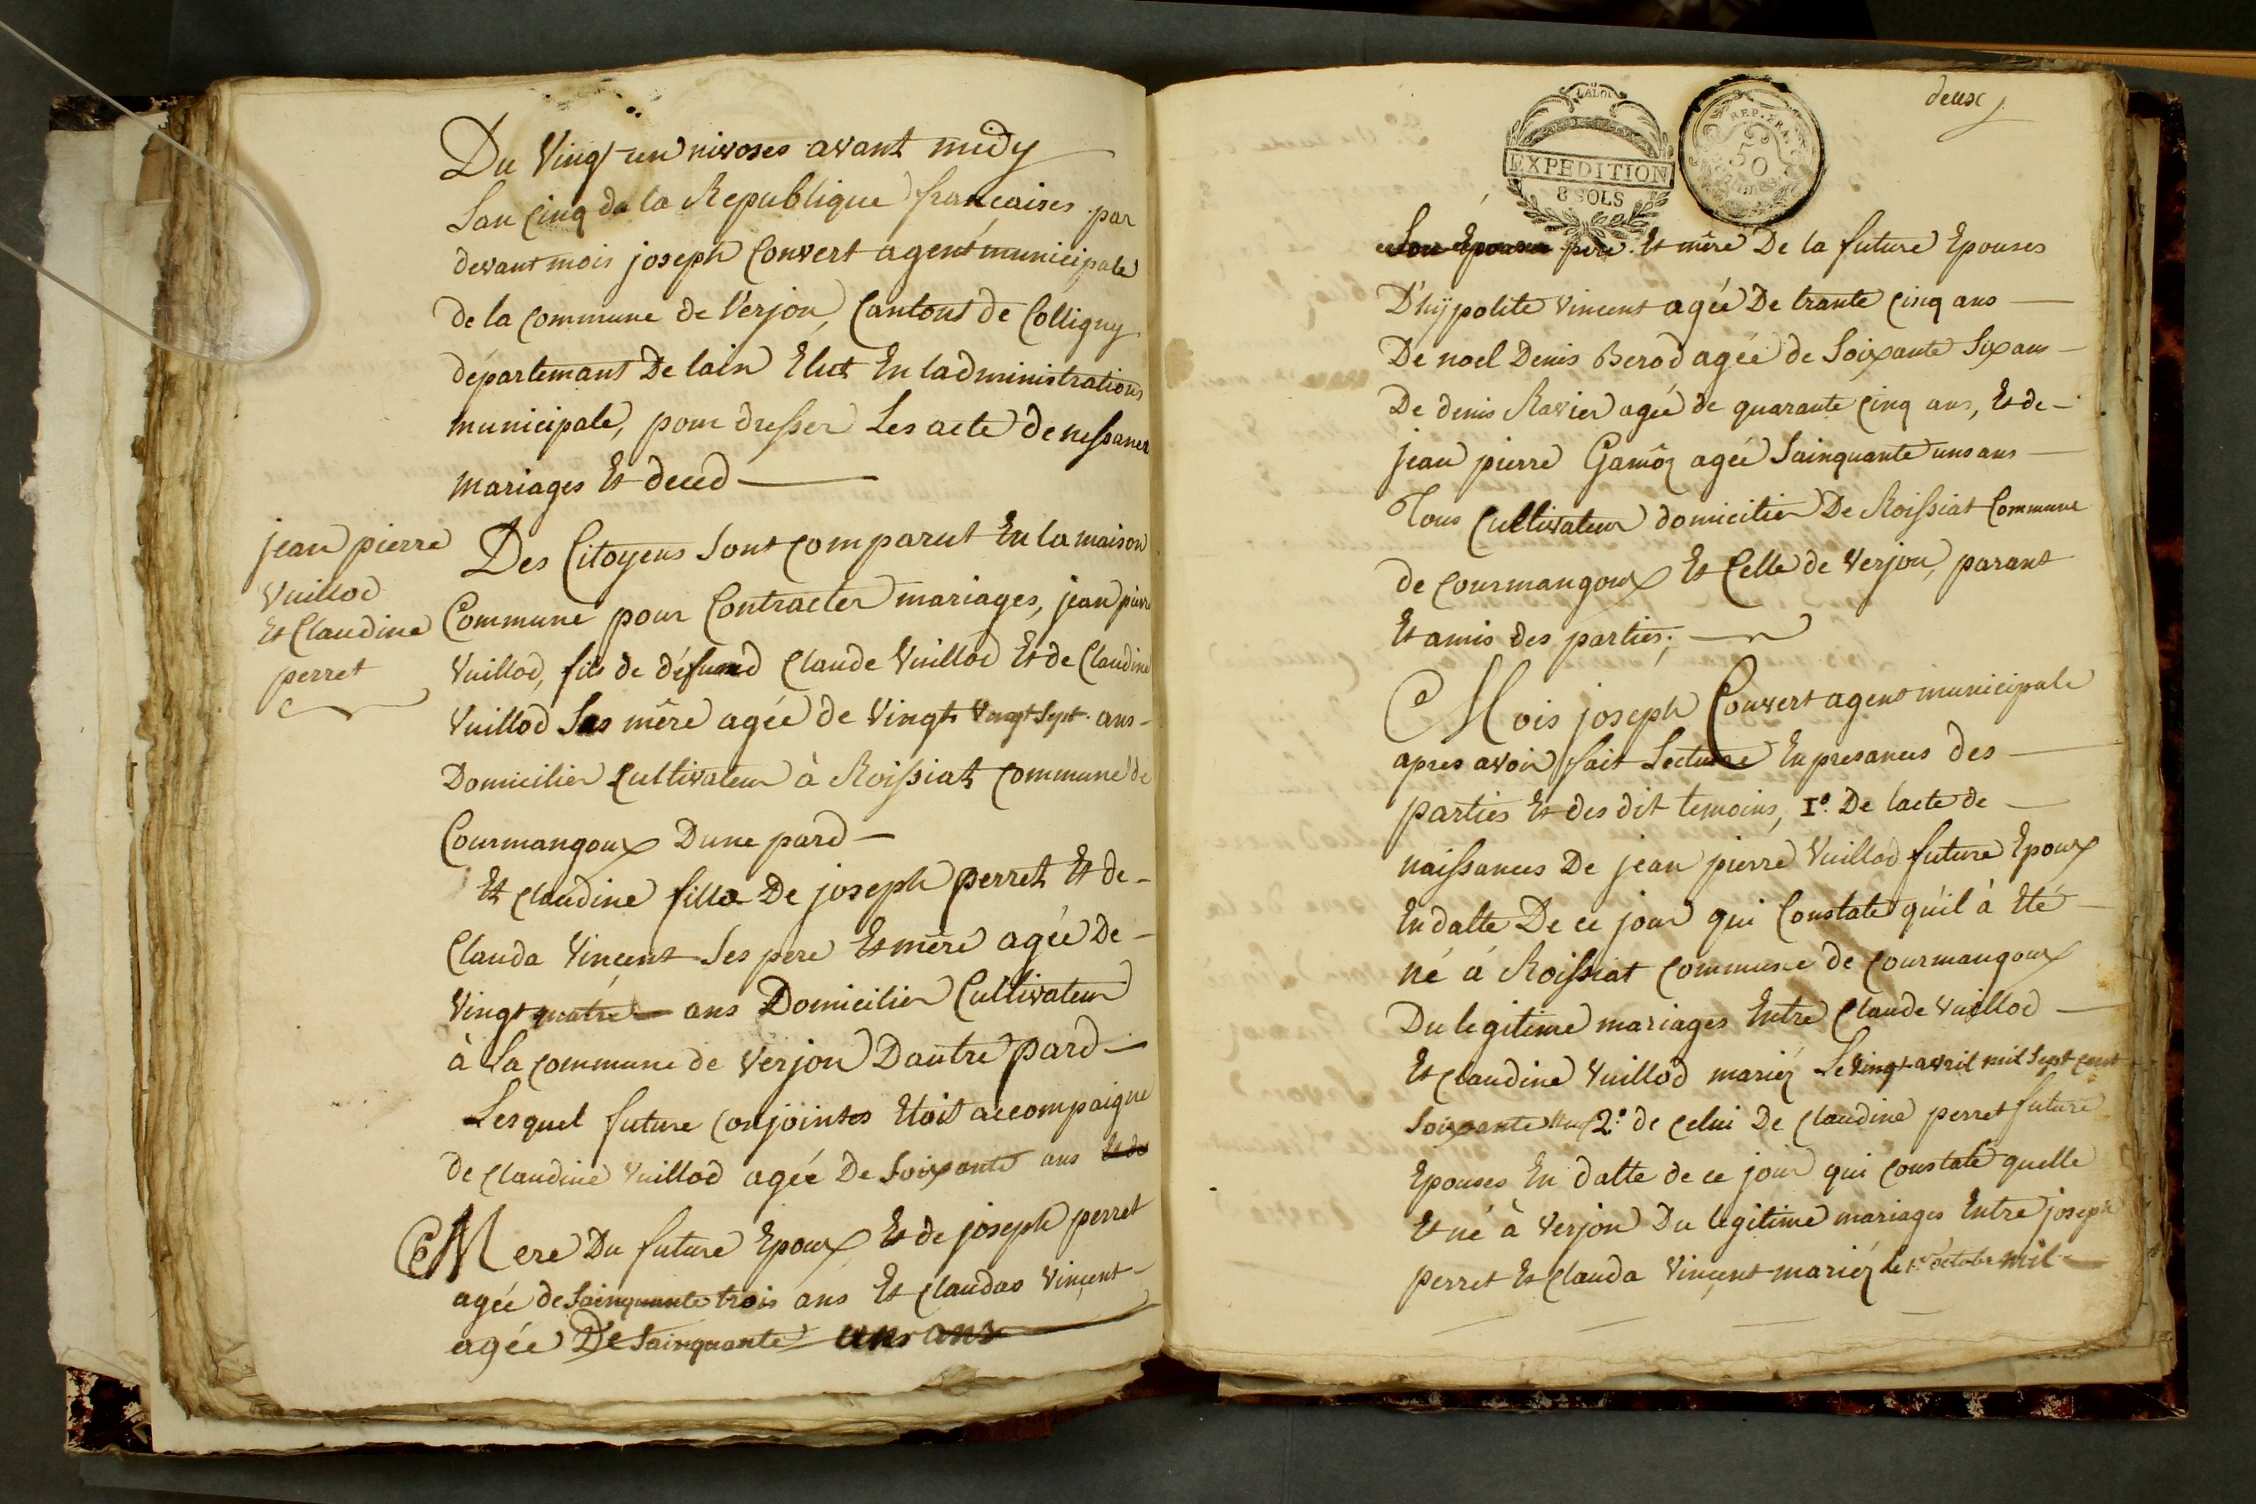 Du Vingt un nivoses avant midy
Lan Cinq de la Republique françaises par
devant mois joseph Convert agent municipale
de la Commune de Verjon, Cantons de Colligny
départemans De lain Elut En ladministrations
municipale, pour dresser Les acte de nessances
mariages Et deced
jean pierre
Vuillod
Et Claudine
perret
Des Citoyens Sont Comparut En la maison
Commune pour Contracter mariages, jean pierre
Vuillod, fils de défund Claude Vuillod Et de Claudine
Vuillod Sas mêre agée de Vingt Vingt Sept ans
Domicilier Cultivateur à Roissiat Commune de
Courmangoux Dune pard
Et Claudine fille De joseph perret Et de
Clauda Vincent Ses pere Et mêre agée De
Vingt quatre ans Domicilier Cultivateur
à La Commune de Verjon Dautre pard
Lesquel future Conjointes Etoit accompaigne
de Claudine Vuillod agée De Soixante ans Et de
Mere Du future Epoux Et de joseph perret
agée de Sainquante trois ans Et Claudas Vincent
agée De Sainquante uns ans
LALOI
EXPEDITION
8 SOLS
REP. FRA.
50
deux
Son Epouse pere Et mêre De la future Epouses
D'hÿpolite Vincent agée De trante Cinq ans
De noel Denis Berod agée de Soixante Six ans
De denis Ravier agée de quarante Cinq ans, Et de
jean pierre Gamôz agée Sainquante uns ans
Tous Cultivateur domicilier De Roissiat Commune
de Courmangoux Et Celle de Verjon, parant
Et amis des parties;
Mois joseph Convert agent municipale
apres avoir fait Lecture En presances des
parties Et des dit temoins, 1º. De lacte de
naissances De jean pierre Vuillod future Epoux
En datte De ce jour qui Constate qu'il à Eté
né à Roissiat Commune de Courmangoux
Du legitime mariages Entre Claude Vuillod
Et Claudine Vuillod mariéz Le Vingt avril mil Sept Cent
Soixante 2º. de Celui De Claudine perret future
Epouses En datte de ce jour qui Constate quelle
Et né à Verjon Du legitime mariages Entre joseph
perret Et Clauda Vincent mariéz le 1er octobre mil